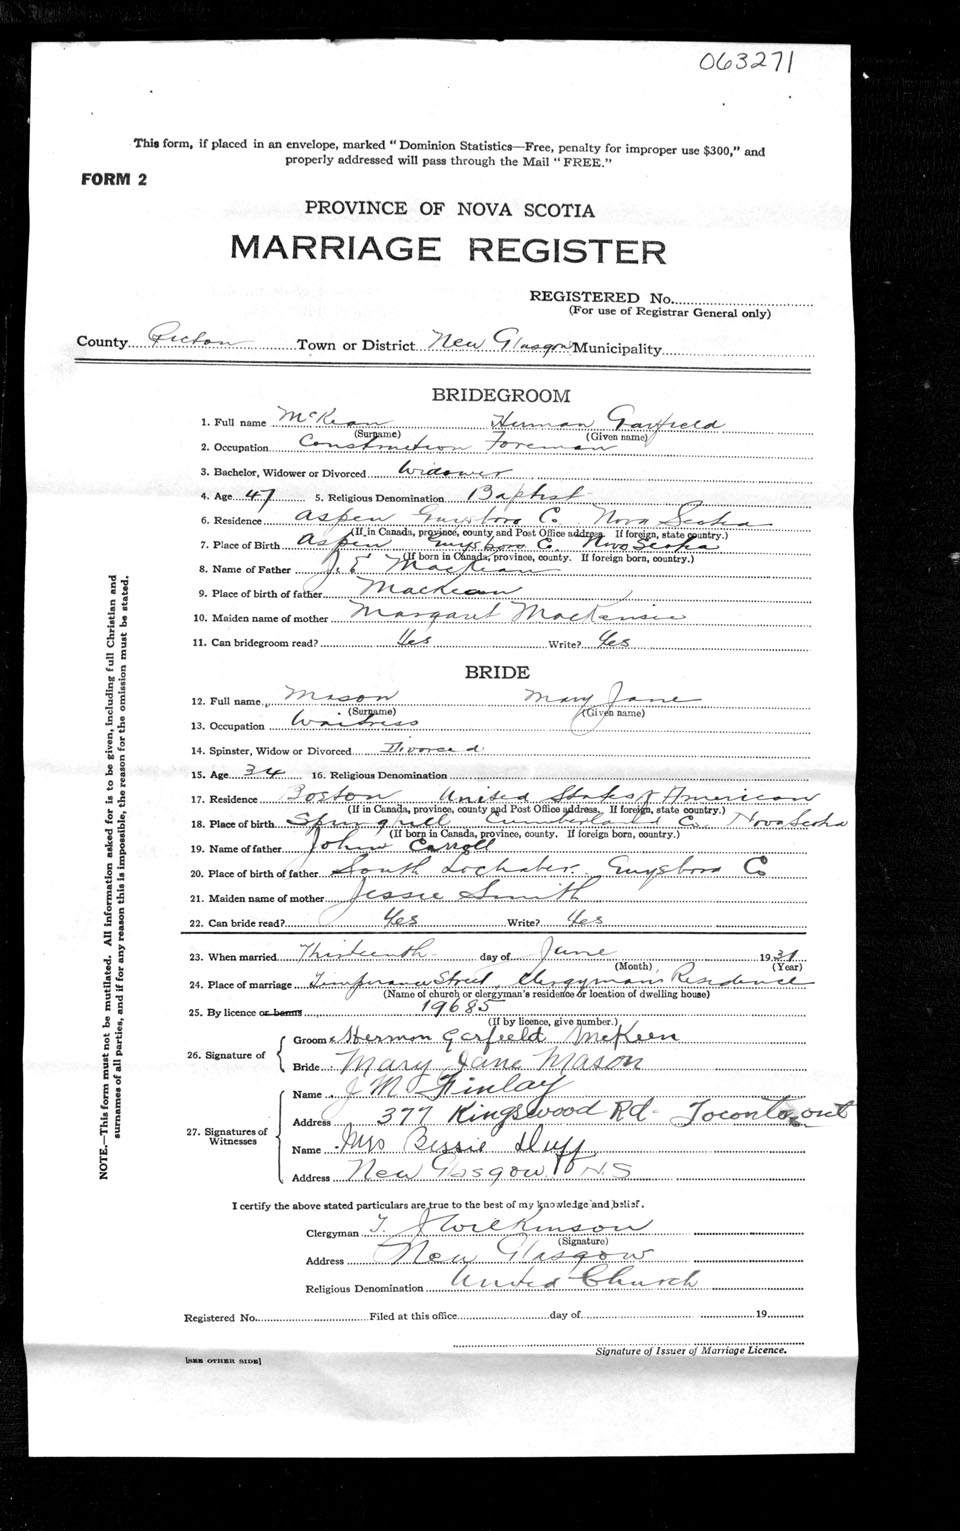 063271
This form, if placed in an envelope, marked "Dominion Statistics—Free, penalty for improper use $300," and
properly addressed will pass through the Mail "FREE."
FORM 2
PROVINCE OF NOVA SCOTIA
MARRIAGE REGISTER
REGISTERED No.
(For use of Registrar General only)
County Pictou Town or District New Glasgow Municipality
BRIDEGROOM
1. Full name McKean Herman Garfield
(Surname) (Given name)
2. Occupation Construction Foreman
3. Bachelor, Widower or Divorced Widower
4. Age 47 5. Religious Denomination Baptist
6. Residence Aspen Guysboro Co. Nova Scotia
(If in Canada, province, county and Post Office address. If foreign, state country.)
7. Place of Birth Aspen Guysboro Co. Nova Scotia
(If born in Canada, province, county. If foreign born, country.)
8. Name of Father J. E. MacKean
9. Place of birth of father MacKean
10. Maiden name of mother Margaret MacKensie
11. Can bridegroom read? Yes Write? Yes
BRIDE
12. Full name Mason Mary Jane
(Surname) (Given name)
13. Occupation Waitress
14. Spinster, Widow or Divorced Divorced
15. Age 34 16. Religious Denomination
17. Residence Boston United States of American
(If in Canada, province, county and Post Office address. If foreign, state country.)
18. Place of birth Springhill Cumberland Co. Nova Scotia
(If born in Canada, province, county. If foreign born, country.)
19. Name of father John Carroll
20. Place of birth of father South Lochaber Guysboro Co
21. Maiden name of mother Jessie Smith
22. Can bride read? Yes Write? Yes
23. When married Thirteenth day of June 1931
(Month) (Year)
24. Place of marriage Temperance Street, Clergyman's Residence
(Name of church or clergyman's residence or location of dwelling house)
25. By licence or banns 19685
(If by licence, give number.)
26. Signature of
Groom Hermon Garfield McKeen
Bride Mary Jane Mason
27. Signatures of Witnesses
Name J M Finlay
Address 377 Kingswood Rd - Toronto, ont
Name Mrs Bessie Duff
Address New Glasgow N.S
I certify the above stated particulars are true to the best of my knowledge and belief.
Clergyman T. J Wilkinson
(Signature)
Address New Glasgow
Religious Denomination United Church
Registered No. Filed at this office day of 19
Signature of Issuer of Marriage Licence.
[SEE OTHER SIDE]
NOTE.—This form must not be mutilated. All information asked for is to be given, including full Christian and
surnames of all parties, and if for any reason this is impossible, the reason for the omission must be stated.